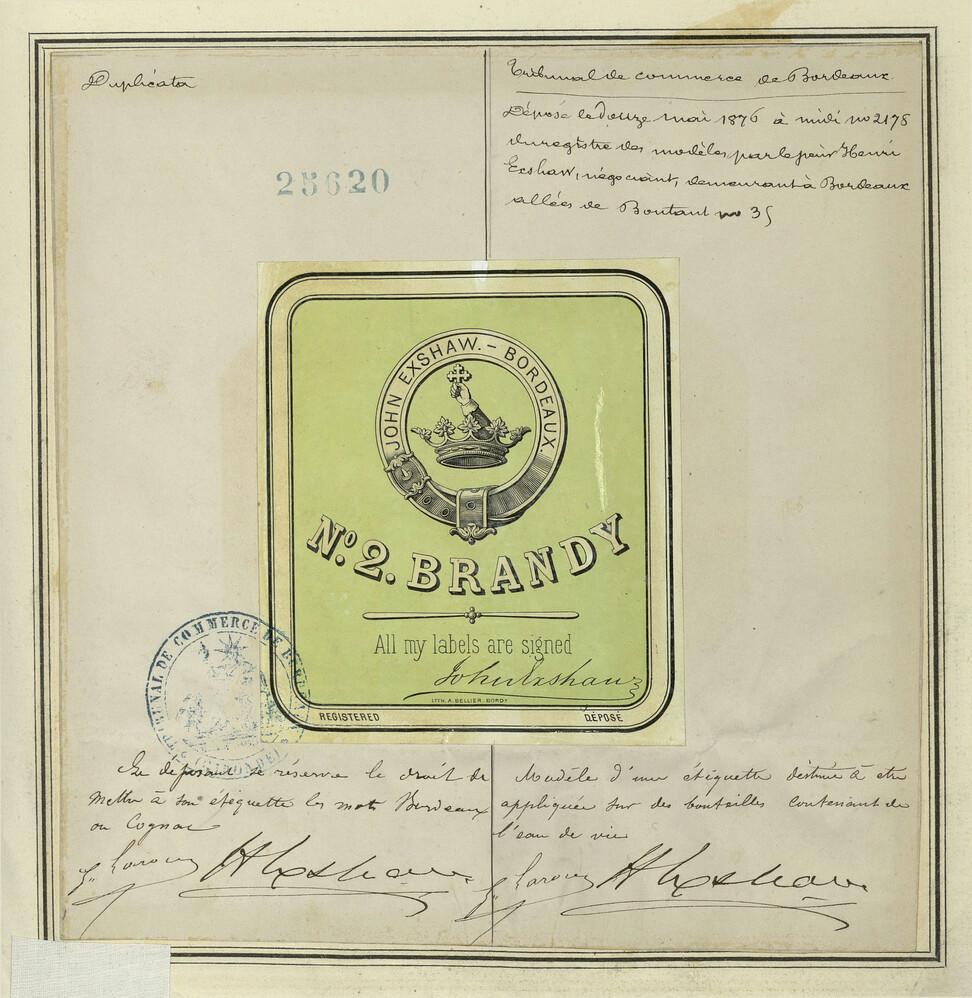 Duplicata
25620
Tribunal de commerce de Bordeaux.
Déposé le douze mai 1876 à midi no 2178
du registre des modèles par le sieur Henri
Exshaw, négociant, demeurant à Bordeaux
allées de Boutaut no 35
JOHN EXSHAW. - BORDEAUX.
No. 2. BRANDY
All my labels are signed
John Exshaw
LITH. A. BELLIER. BORDX
REGISTERED DÉPOSÉ
TRIBUNAL DE COMMERCE DE BORDEAUX
GIRONDE
Le déposant se réserve le droit de
mettre à son étiquette les mots Bordeaux
ou Cognac
H Exshaw
Modèle d'une étiquette destinée à etre
appliquée sur des bouteilles contenant de
l'eau de vie
H Exshaw